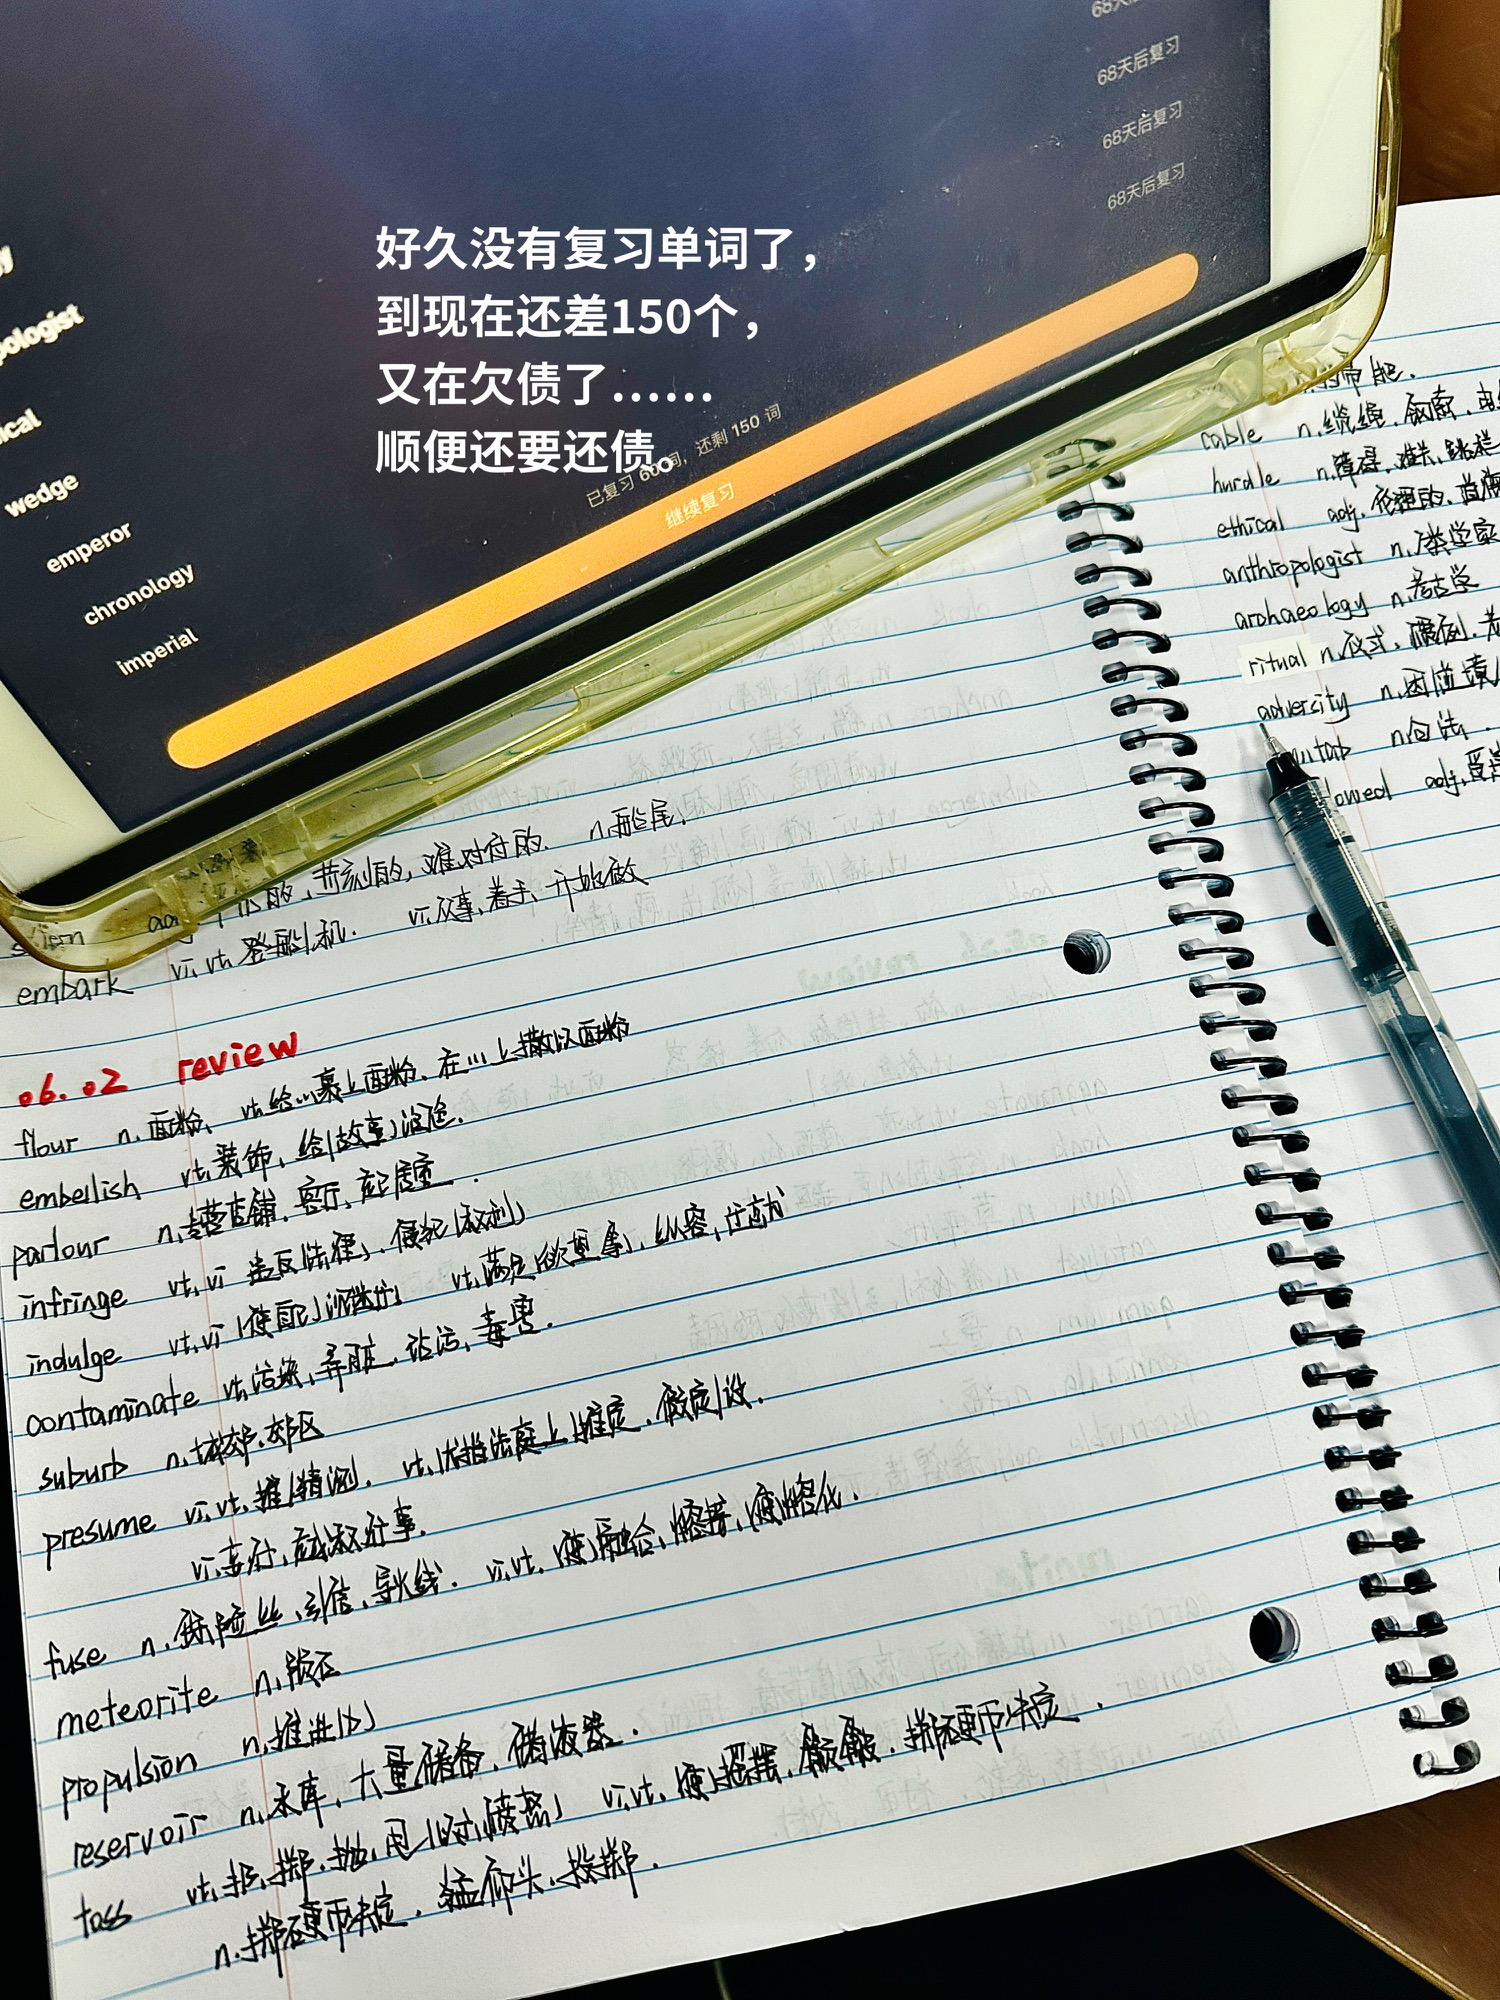 68天后复习
68天后复习
68天后复习
68天后复习
好久没有复习单词了，
到现在还差150个，
又在欠债了……
顺便还要还债。
已复习 60 词，还剩 150 词
继续复习
pologist
ical
wedge
emperor
chronology
imperial
苛刻的,难对付的. n.船尾.
embark vi,vt,登船/机. vi,从事,着手,开始做
06.02 review
flour n.面粉, vt,给…裹上面粉,在…上撒以面粉
embellish vt,装饰,给(故事)润色.
parlour n,专营店铺,客厅,起居室.
infringe vt,vi 违反(法律),侵犯(权利)
indulge vt,vi (使自己)沉迷于 vt,满足(欲望等),纵容,迁就
contaminate vt,污染,弄脏,玷污,毒害.
suburb n,城郊,郊区
presume vi,vt,推/猜测. vt,(尤指法庭上)推定,假定/设.
fuse n,保险丝,引信,导火线. vi,vt,(使)融合,熔接,(使)熔化.
meteorite n,陨石
propulsion n,推进(力)
reservoir n,水库,大量储备,储液器.
toss vt,扔,掷,抛,甩 vi,vt,(使)摇摆,颠簸,掷硬币决定.
n.掷硬币决定,猛仰头,投掷.
cable n,缆绳,钢索,电
hurdle n,障碍,难关,跨栏
ethical adj,伦理的,道德
anthropologist n,人类学家
archaeology n,考古学
ritual n,仪式,
adversity n,困境,
n,白
owed adj,